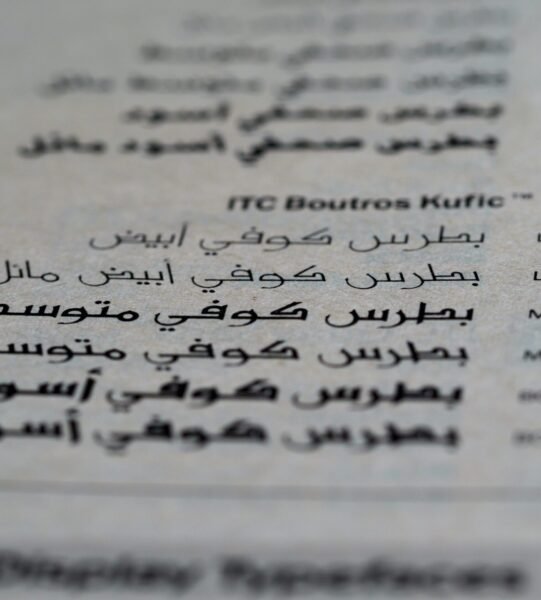 بطرس صحفي متوسط
بطرس صحفي متوسط مائل
بطرس صحفي أسود
بطرس صحفي أسود مائل
ITC Boutros Kufic™
بطرس كوفي أبيض
بطرس كوفي أبيض مائل
بطرس كوفي متوسط
بطرس كوفي متوس
بطرس كوفي أسو
بطرس كوفي أسو
Display Typefaces